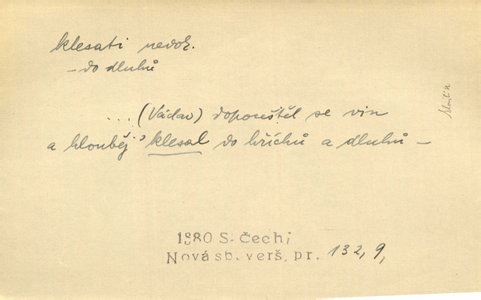 klesati nedok.
– do dluhů
... (Václav) dopouštěl se vin
a hlouběj' klesal do hříchů a dluhů –
1880 S. Čech,
Nová sb. verš. pr. 132, 9,